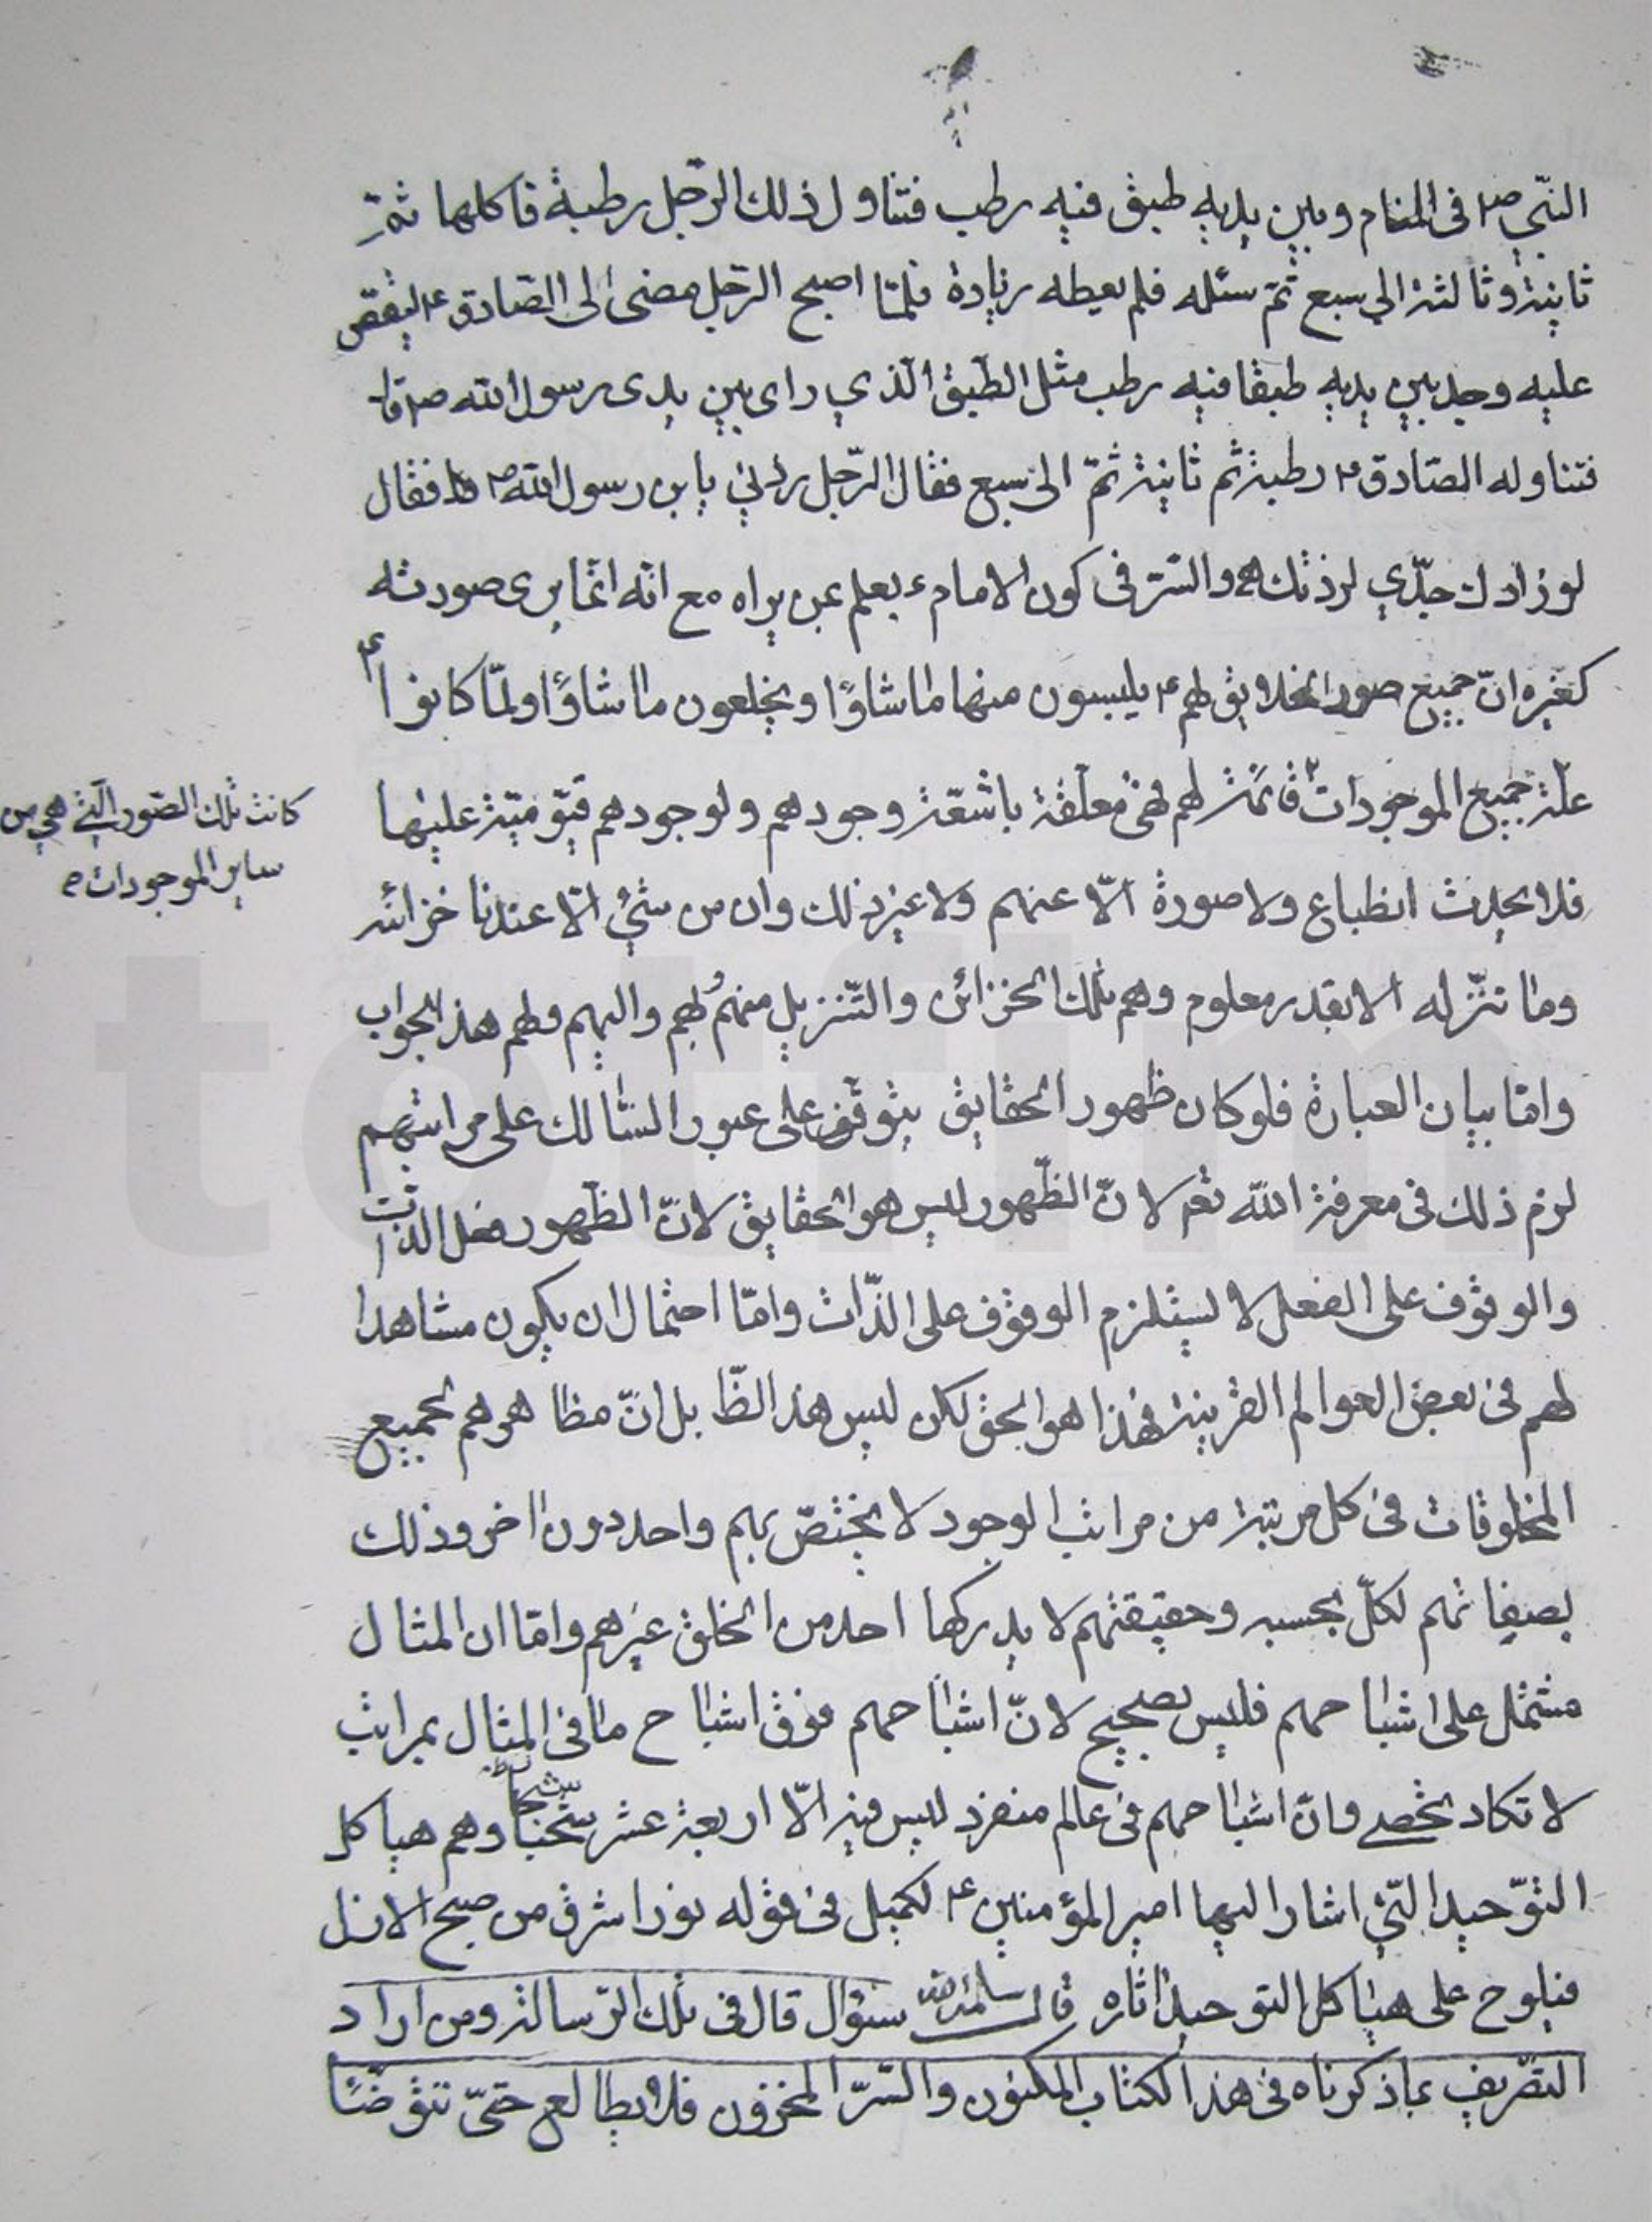 النبي ص في المنام وبين يديه طبق فيه رطب فتناول ذلك الرجل رطبة فاكلها ثم
ثانية وثالثة الي سبع ثم سئله فلم يعطه زيادة فلما اصبح الرجل مضى الى الصادق ع ليقص
عليه وجد بين يديه طبقا فيه رطب مثل الطبق الذي راى بين يدى رسول الله ص قا
فتناوله الصادق ع رطبة ثم ثانية ثم الى سبع فقال الرجل زدني يابن رسول الله ص فقال
لو زادك جدّي لزدتك والسّر فى كون الامام ء يعلم بمن يراه مع انّه انّما يرى صورته
كغيره انّ جميع صور الخلايق لهم ع يلبسون منها ما شاؤا ويخلعون ما شاؤا ولمّا كانوا ع
علّة جميع الموجودات قائمة لهم فهى معلّقة باشعّة وجودهم ولوجودهم قيّوميّة عليها
كانت تلك الصّور الّتي هي من
ساير الموجودات ص
فلا يحدث انطباع ولا صورة الّا عنهم ولا غير ذلك وان من شئ الّا عندنا خزائنه
وما ننزّله الا بقدر معلوم وهم تلك الخزائن والتّنزيل منهم لهم واليهم فلهم هذا الجواب
وامّا بيان العبارة فلو كان ظهور الحقايق يتوقّف على عبور السّالك على مراتبهم
لزم ذلك فى معرفة الله تع لانّ الظّهور ليس هو الحقايق لانّ الظّهور فعل الذات
والوقوف على الفعل لا يستلزم الوقوف على الذّات وامّا احتمال ان يكون مشاهدا
لهم فى بعض العوالم القريبة فهذا هو الحق لكن ليس هذ الظّا بل انّ مظاهرهم لجميع
المخلوقات فى كل مرتبة من مراتب الوجود لا يختصّ بهم واحد دون اخر وذلك
بصفاتهم لكلّ بحسبه وحقيقتهم لا يدركها احد من الخلق غيرهم وامّا ان المثال
مشتمل على اشباحهم فليس بصحيح لانّ اشباحهم فوق اشباح ما فى المثال بمراتب
لا تكاد تحصى وانّ اشباحهم فى عالم منفرد ليس فيه الّا اربعة عشر شبحا وهم هياكل
التّوحيد الّتي اشار اليها امير المؤمنين ع لكميل فى قوله نور اشرق من صبح الازل
فيلوح على هياكل التوحيد اثاره قال سلمه الله سئوال قال فى تلك الرّسالة ومن اراد
التصّريف بما ذكرناه فى هذا الكتاب المكنون والسّرّ المخزون فلا يطالع حتىّ تتوضّئا